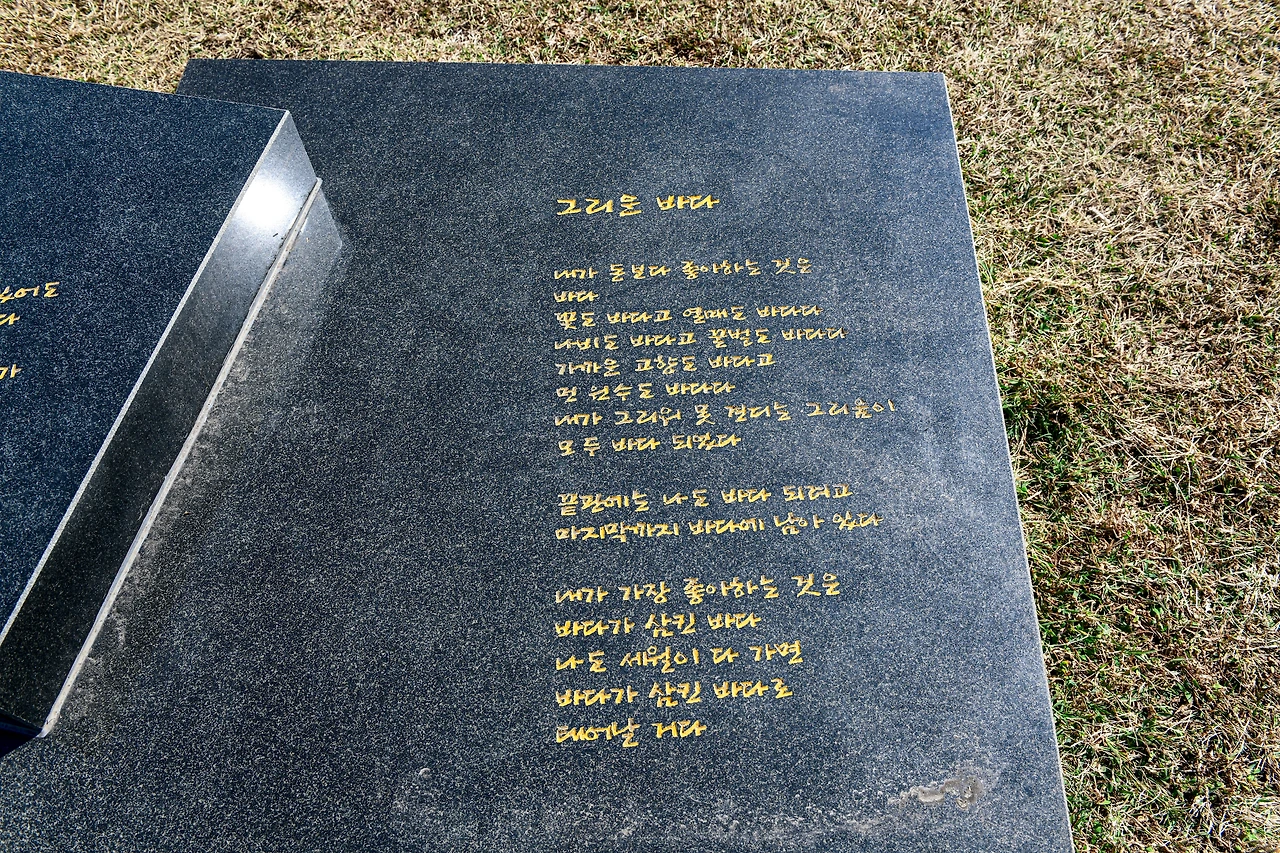 그리운 바다
내가 돈보다 좋아하는 것은
바다
꽃도 바다고 열매도 바다다
나비도 바다고 꿀벌도 바다다
가까운 고향도 바다고
먼 원수도 바다다
내가 그리워 못 견디는 그리움이
모두 바다 되었다
끝판에는 나도 바다 되려고
마지막까지 바다에 남아 있다
내가 가장 좋아하는 것은
바다가 삼킨 바다
나도 세월이 다 가면
바다가 삼킨 바다로
태어날 거다